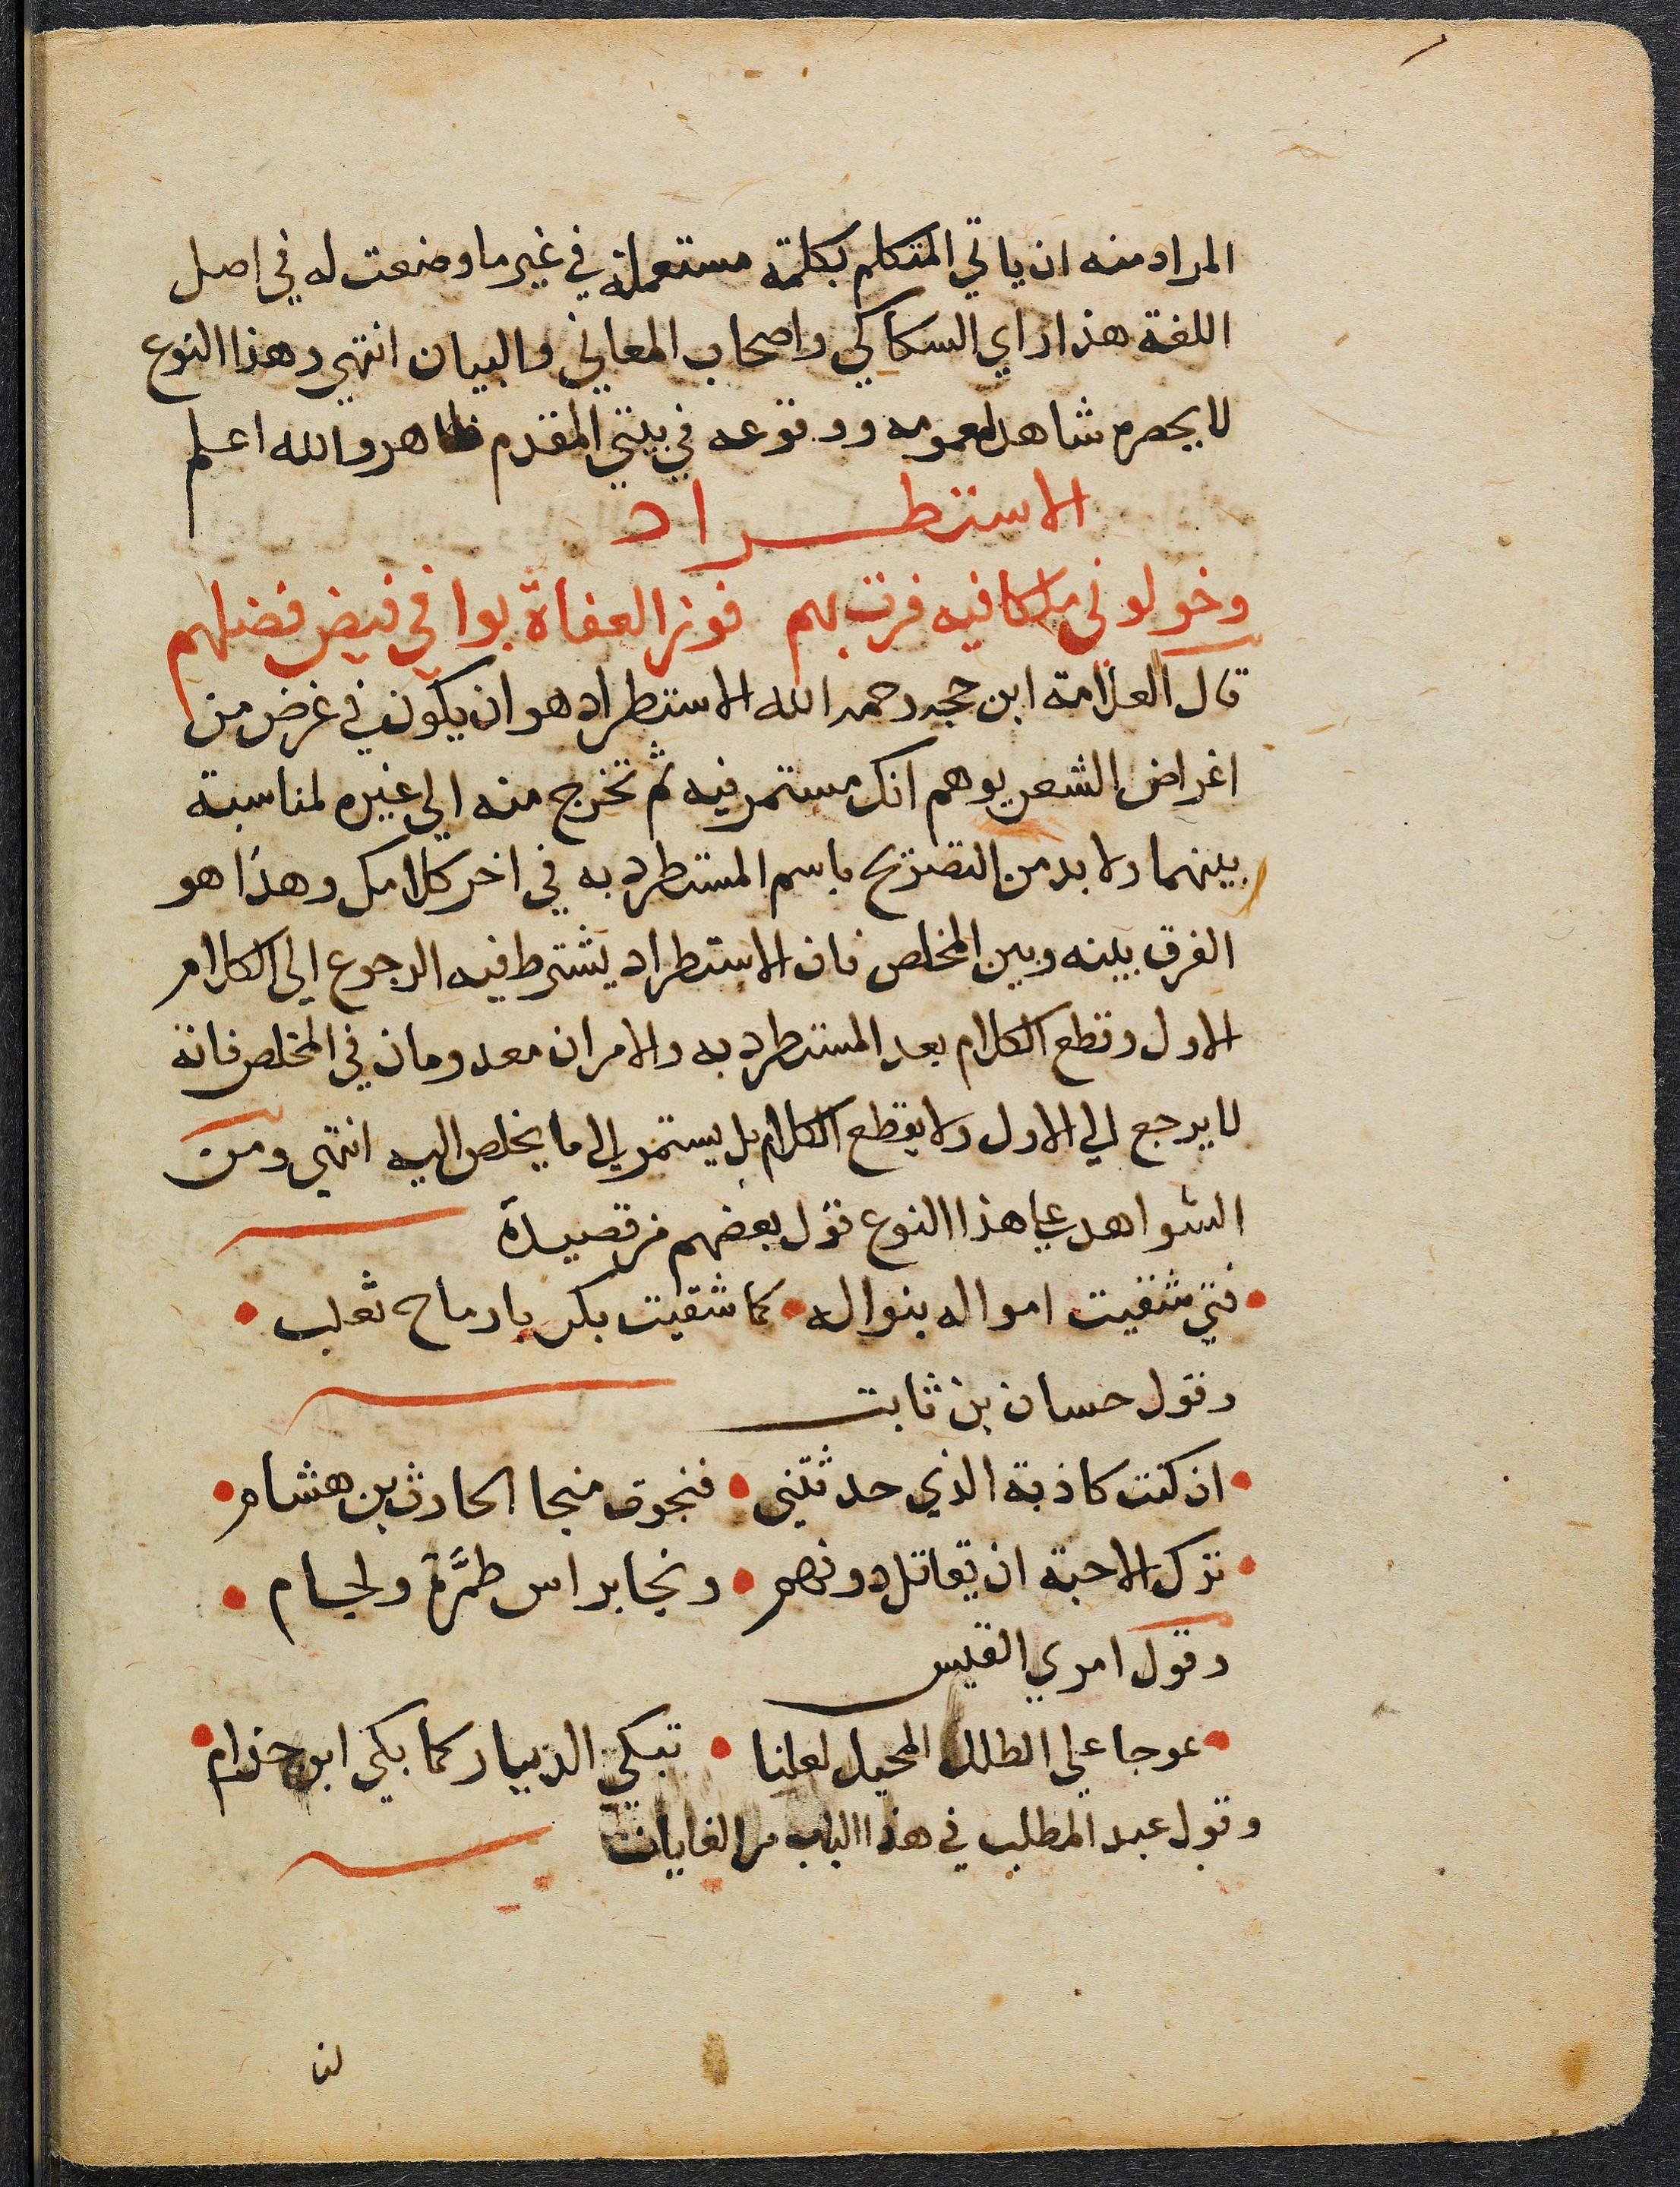 المراد منه ان ياتي المتكلم بكلمة مستعملة في غير ما وضعت له في اصل
اللغة هذا راي السكاكي واصحاب المعاني والبيان انتهي وهذا النوع
لا يحصره شاهد لعمومه ووقوعه في بيتي المقدم ظاهر والله اعلم
الاستطراد
وخولوني ملكا فيه فزت بهم فوز العفاة بوافي فيض فضلهم
قال العلامة ابن حجه رحمه الله الاستطراد هو ان يكون في غرض من
اغراض الشعر يوهم انك مستمر فيه ثم تخرج منه الي غيره لمناسبة
بينهما ولا بد من التصريح باسم المستطرد به في اخر كلامك وهذا هو
الفرق بينه وبين المخلص فان الاستطراد يشترط فيه الرجوع الي الكلام
الاول وقطع الكلام بعد المستطرد به والامران معدومان في المخلص فانه
لا يرجع الي الاول ولا يقطع الكلام بل يستمر الي ما يخلص اليه انتهي ومن
الشواهد علي هذا النوع قول بعضهم من قصيدة
فتي شقيت امواله بنواله • كما شقيت بكر بارماح ثعلب
وقول حسان بن ثابت
ان كنت كاذبة الذي حدثتني • فنجوت منجا الحارث بن هشام
ترك الاحبة ان يقاتل دونهم • ونجا براس طمرّة ولجام
وقول امري القيس
عوجا علي الطلل المحيل لعلنا • نبكي الديار كما بكي ابن حذام
وقول عبد المطلب في هذا الباب من الغايات